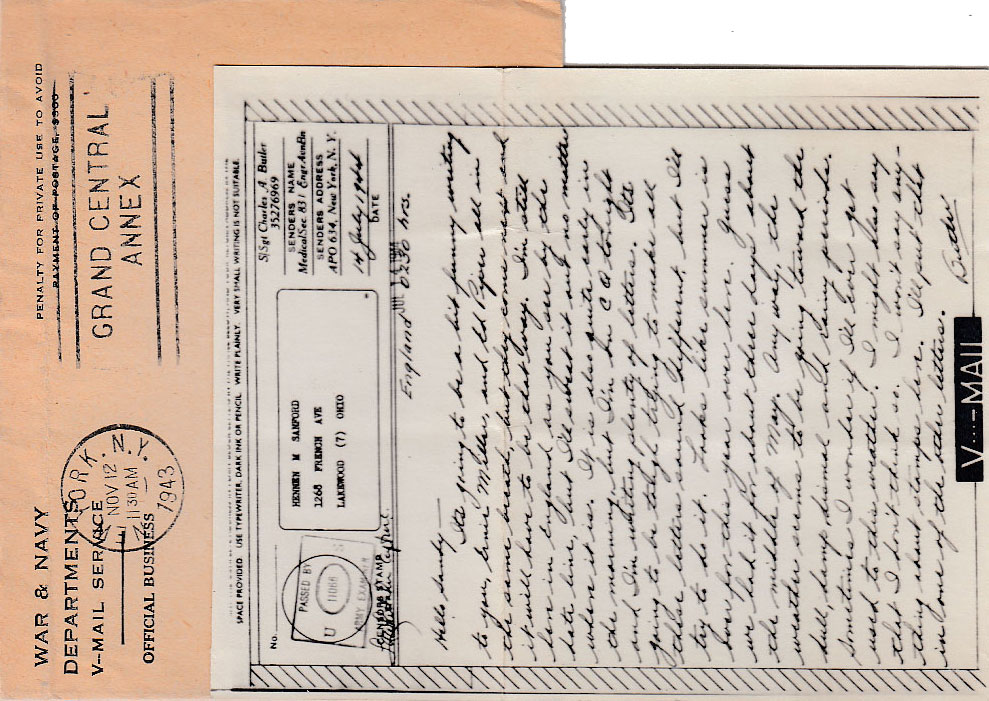 WAR & NAVY
DEPARTMENTS
V--MAIL SERVICE
OFFICIAL BUSINESS
YORK, N.Y.
NOV 12
11 30 AM
1943
PENALTY FOR PRIVATE USE TO AVOID
PAYMENT OF POSTAGE, $300
GRAND CENTRAL
ANNEX
SPACE PROVIDED. USE TYPEWRITER, DARK INK OR PENCIL. WRITE PLAINLY. VERY SMALL WRITING IS NOT SUITABLE.
No.
PASSED BY
U S
11066
ARMY EXAMINER
CENSORS STAMP
HENNEN M SANFORD
1268 FRENCH AVE
LAKEWOOD (7) OHIO
S/Sgt Charles A. Butler
35276969
SENDERS NAME
Medical Sec. 83 Engr. Avn Bn
SENDERS ADDRESS
APO 634, New York, N. Y.
14 July 1944
DATE
England 0230 hrs.
Hello Sandy—
Its going to be a bit funny writing
to you, Ernie Miller, and Ed Piper all in
the same breath, but they come next and
it will have to be that way. I'm still
here in England as you see by the
date line, but I'll sweat it out no matter
where it is. It is also quite early in
the morning, but I'm in C Q tonight
and I'm writing plenty of letters. Its
going to be tough trying to make all
these letters sound different, but I'll
try to do it. Looks like summer is
over for this year over here. Guess
we had it for about three days about
the middle of May. Anyway, the
weather seems to be going toward the
dull, damp, dismal and rainy grinds.
Sometimes I wonder if I'll ever get
used to this weather. I might also say
that I don't think so. I won't say any-
thing about stamps here. I'll put that
in one of the other letters.
Butler
V···-MAIL